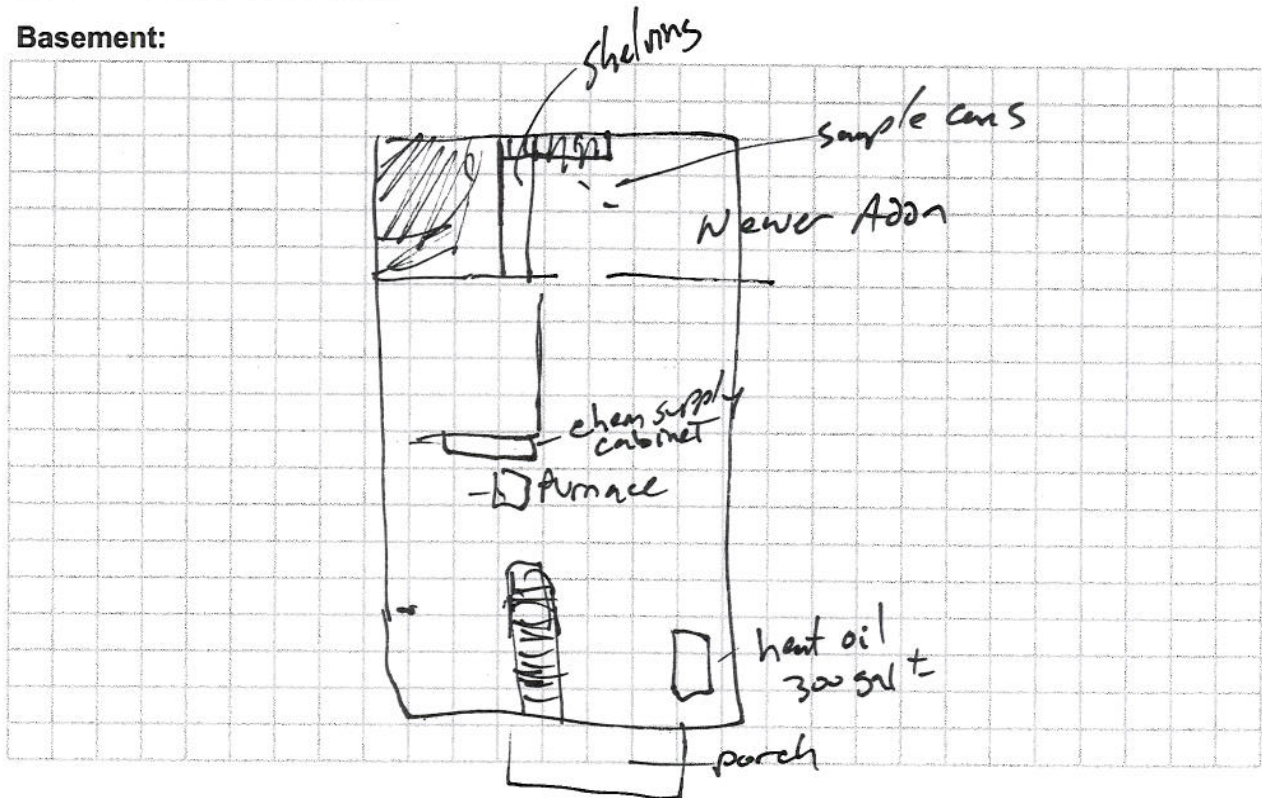 Basement:
shelving
sample cans
Newer Addn
chem supply
cabinet
furnace
heat oil
300 gal ±
porch